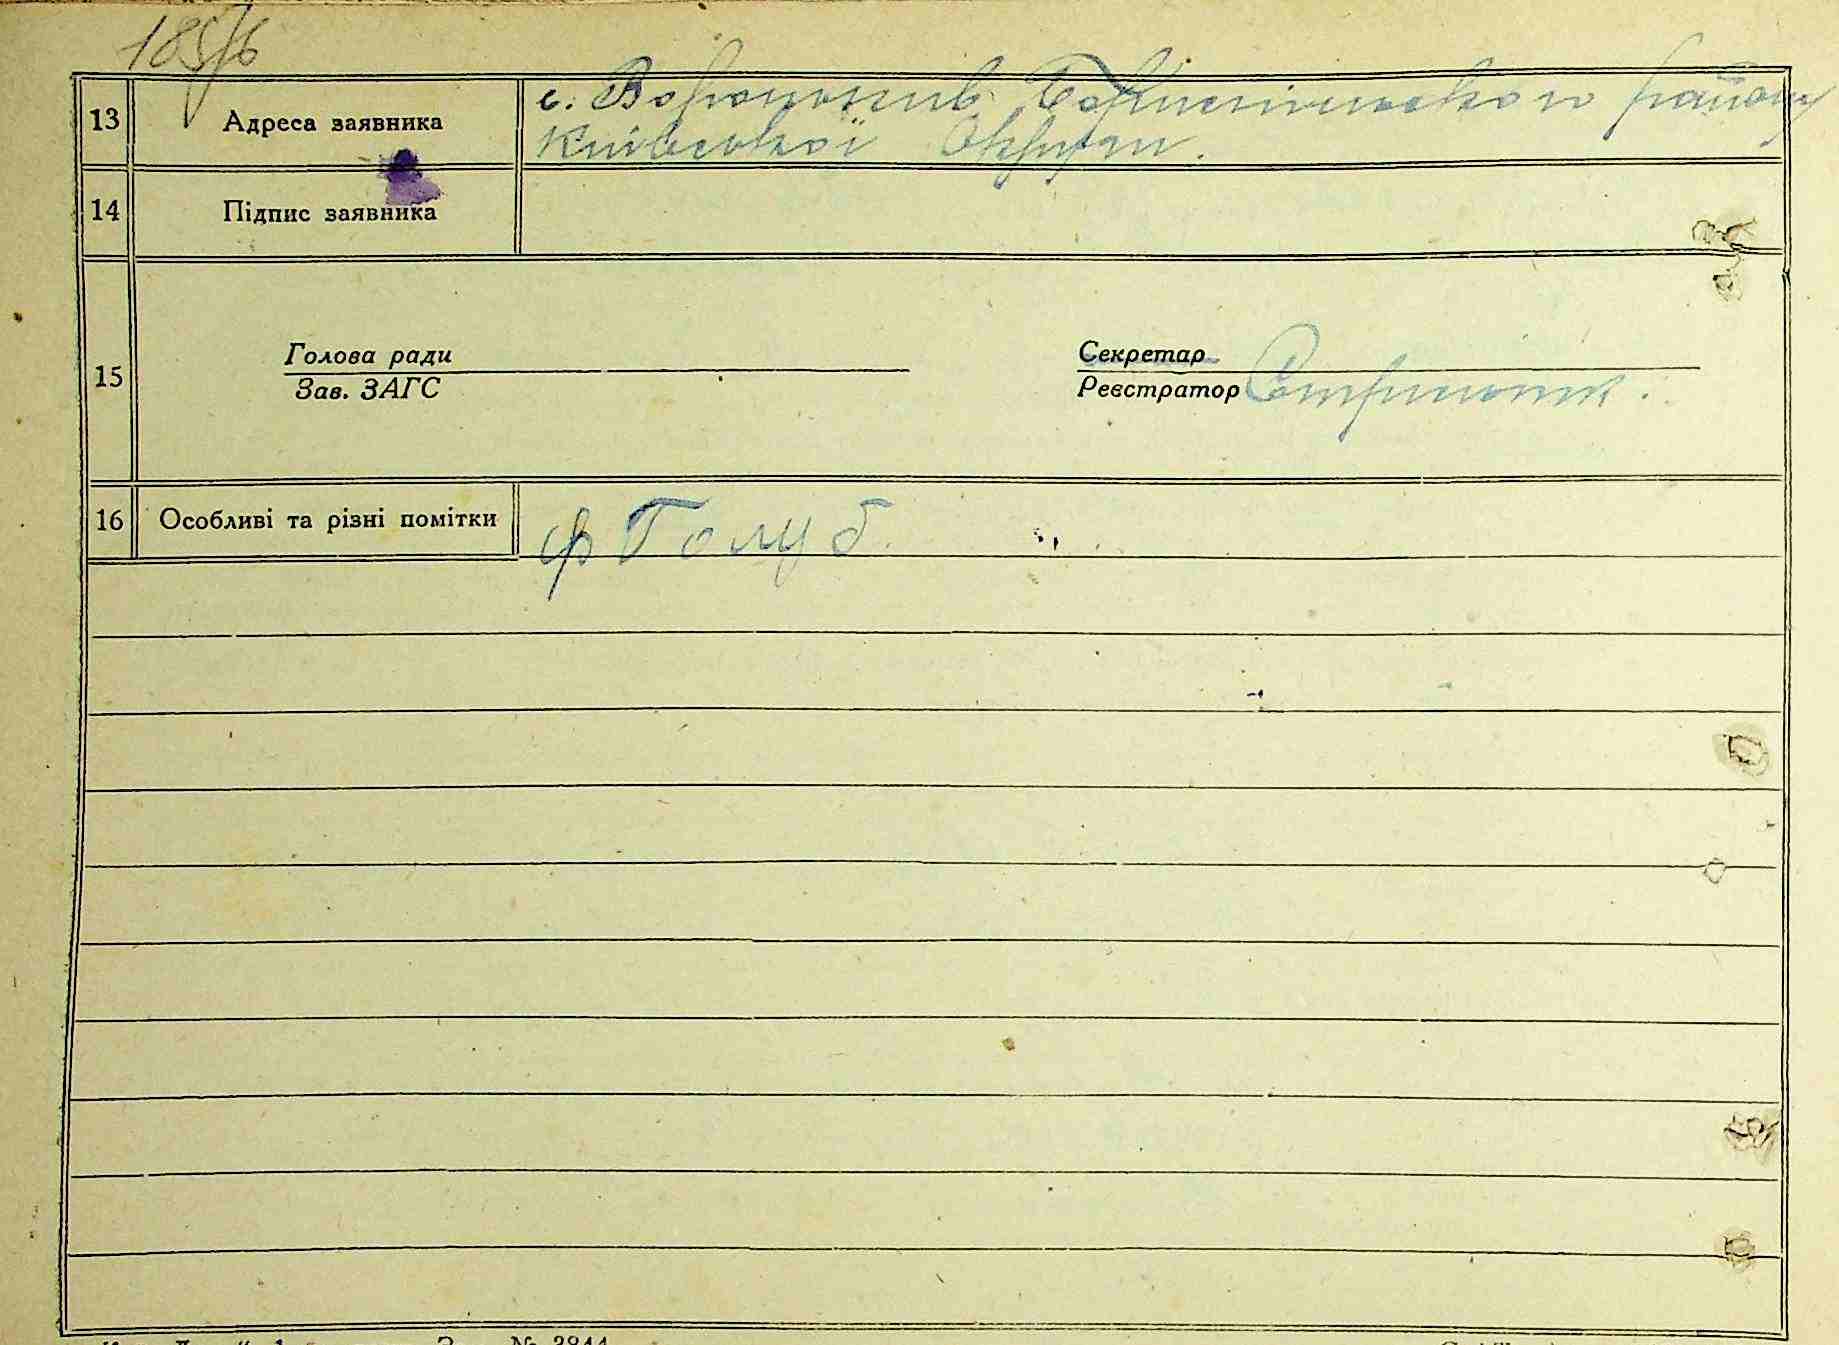 185/6
13 Адреса заявника с. Вороньків Бориспільского району
Київської Округи.
14 Підпис заявника
15 Голова ради Секретар
Зав. ЗАГС Реєстратор
16 Особливі та різні помітки ф Голуб.
№ 3844